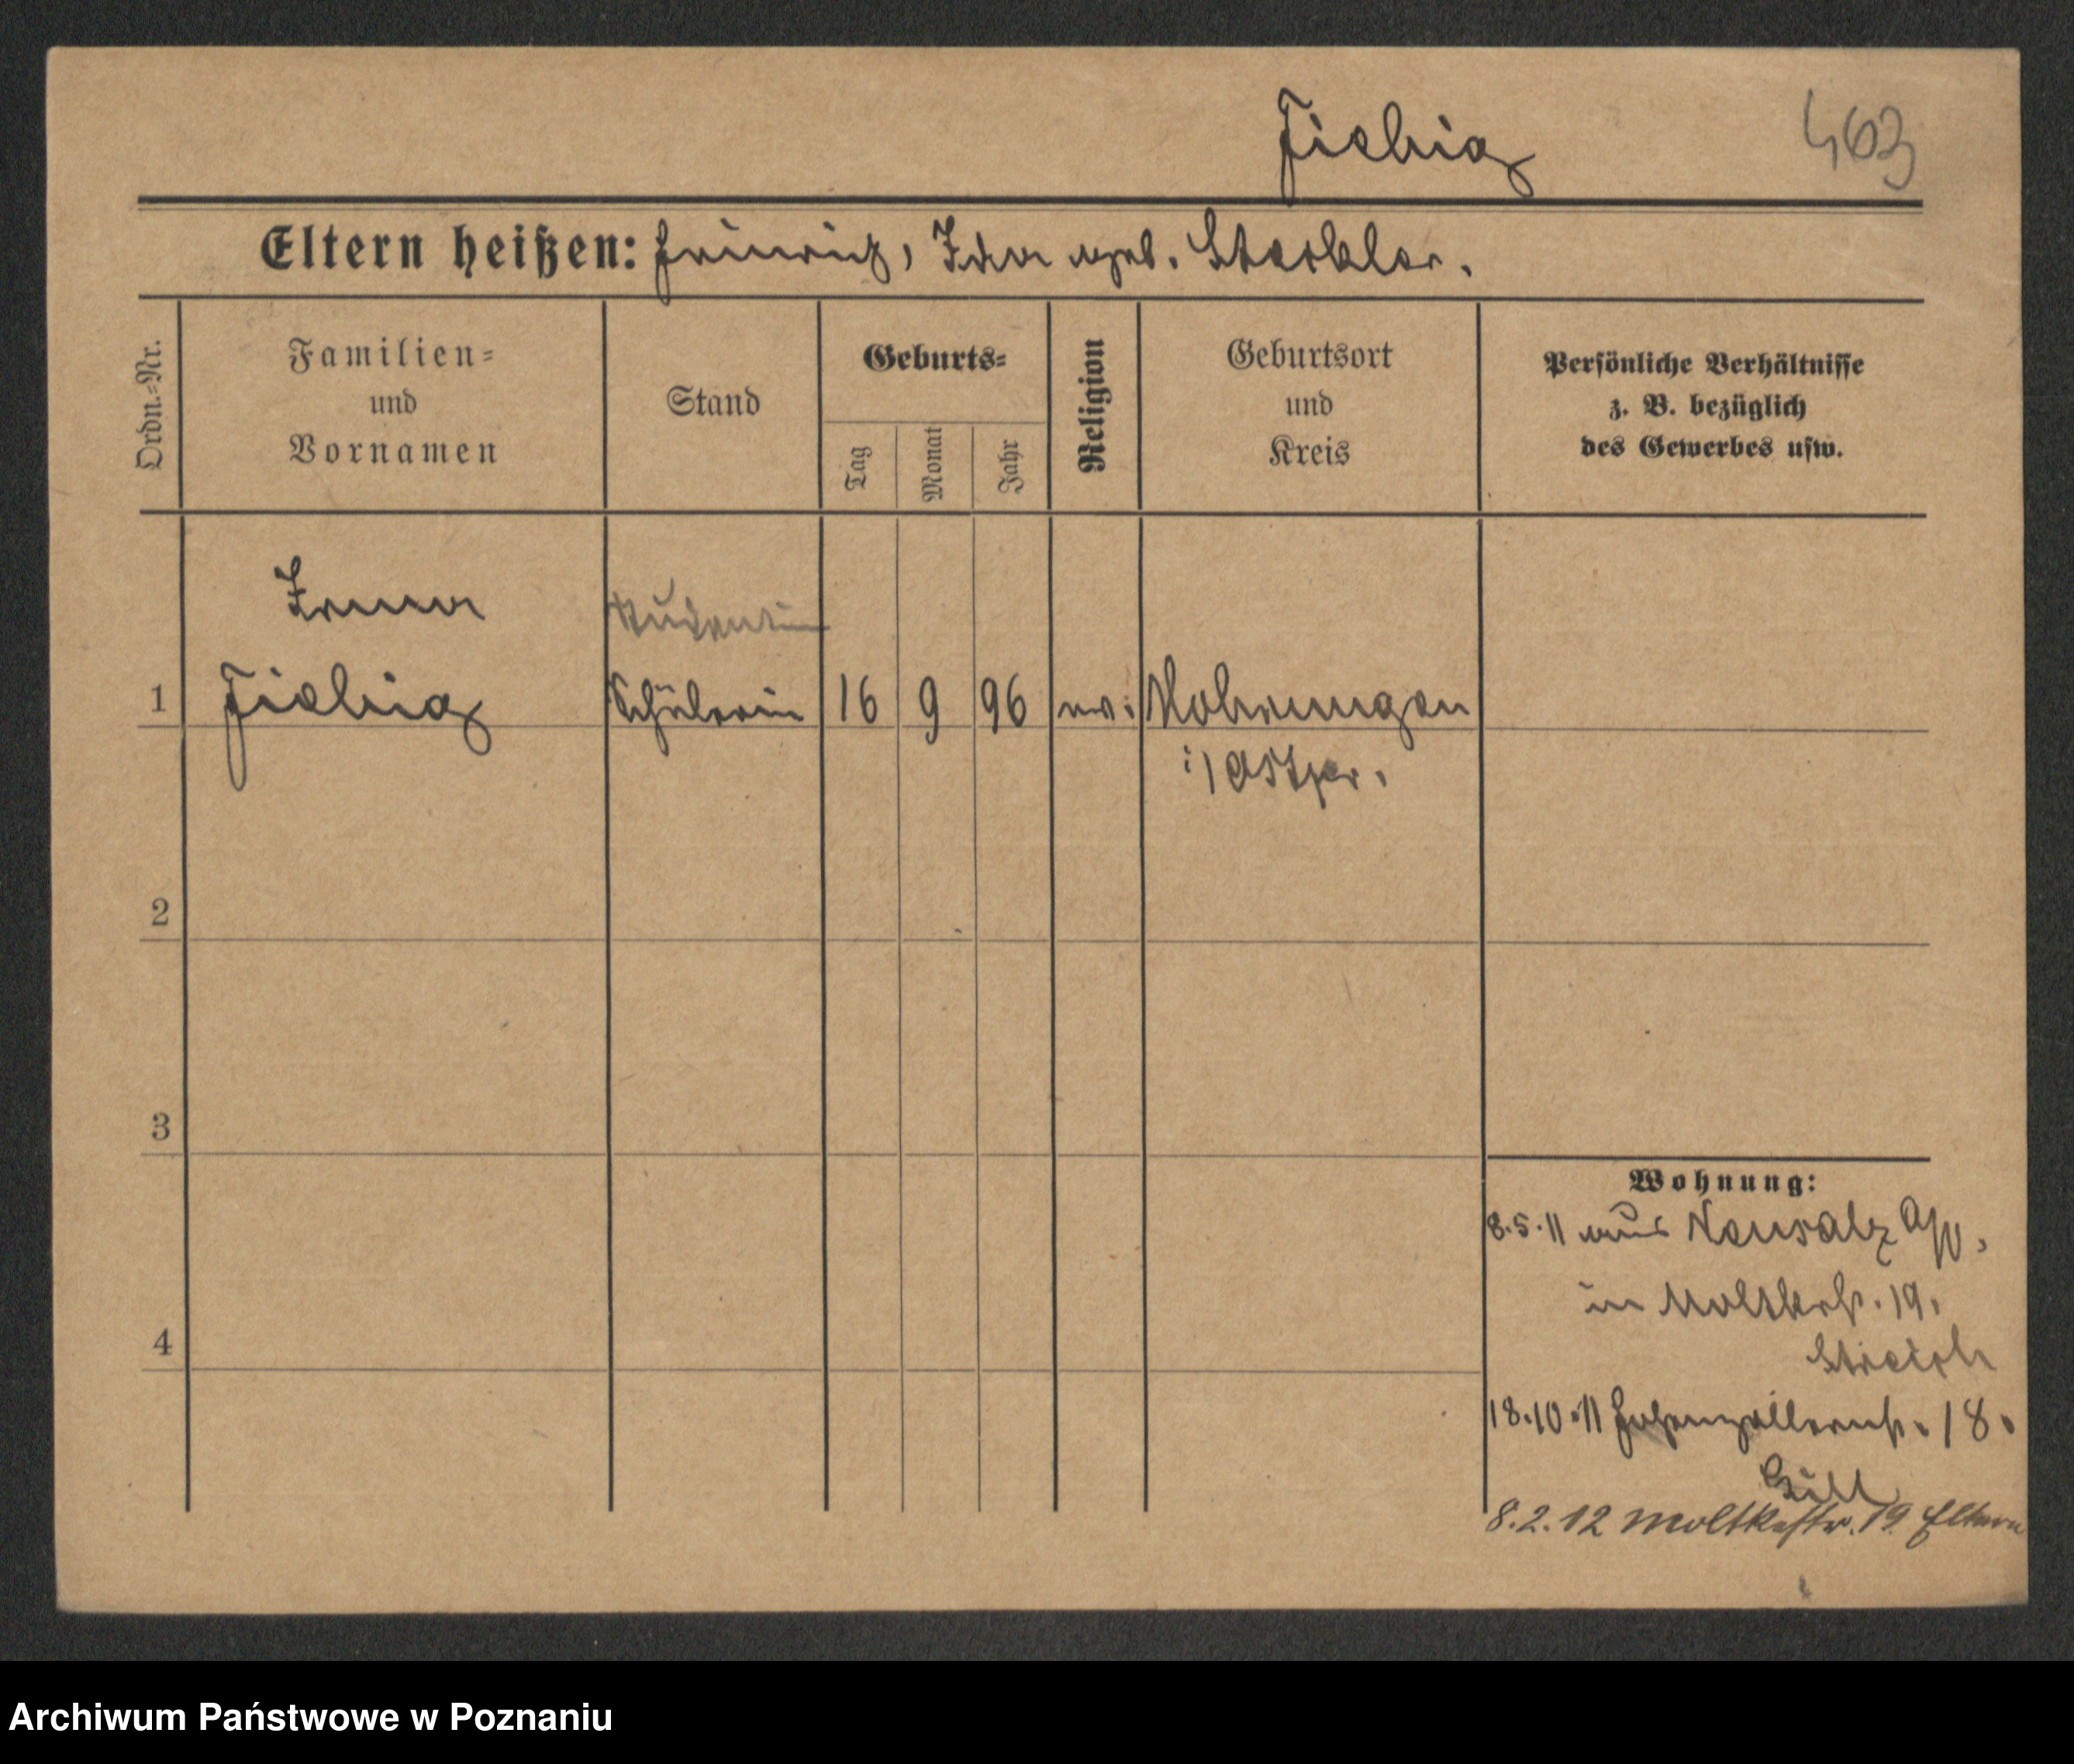 Fiebig 463
Eltern heißen: Heinrich, Ida geb. Staebler.
Ordn.-Nr.
Familien-
und
Vornamen
Stand
Geburts-
Tag
Monat
Jahr
Religion
Geburtsort
und
Kreis
Persönliche Verhältnisse
z. B. bezüglich
des Gewerbes usw.
Irma
Studentin
1 Fiebig Schülerin 16 9 96 ev: Mohrungen
i/ Ostpr.
2
3
4
Wohnung:
8.5.11 aus Neusalz a/O.
in Moltkestr. 19.
Streich
18.10.11 Hohenzollernstr. 18.
8.2.12 Moltkestr. 19 Eltern
Archiwum Państwowe w Poznaniu